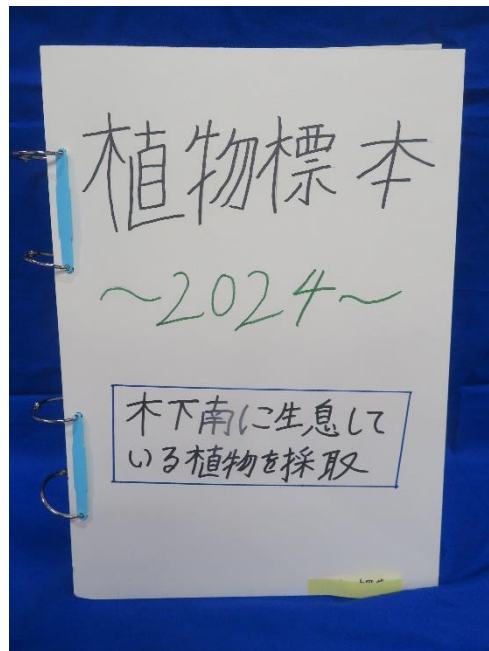 植物標本
～2024～
木下南に生息して
いる植物を採取